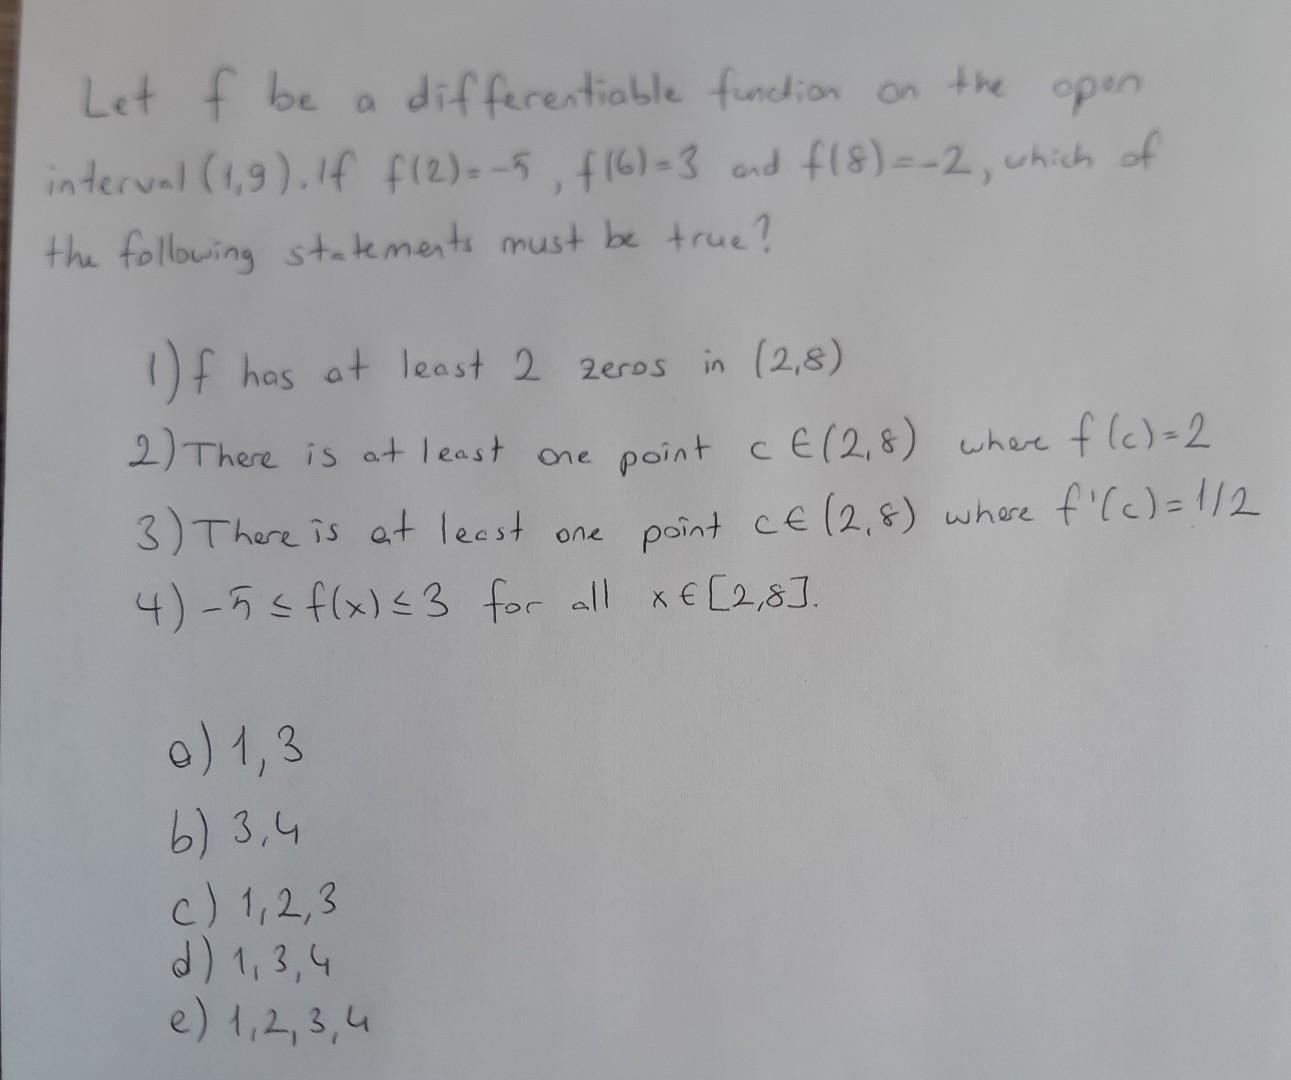 Let f be a differentiable function on the open
interval (1,9). If f(2)=-5, f(6)=3 and f(8)=-2, which of
the following statements must be true?
1) f has at least 2 zeros in (2,8)
2) There is at least one point c ∈ (2,8) where f(c)=2
3) There is at least one point c ∈ (2,8) where f'(c)=1/2
4) -5 ≤ f(x) ≤ 3 for all x ∈ [2,8].
a) 1,3
b) 3,4
c) 1,2,3
d) 1,3,4
e) 1,2,3,4